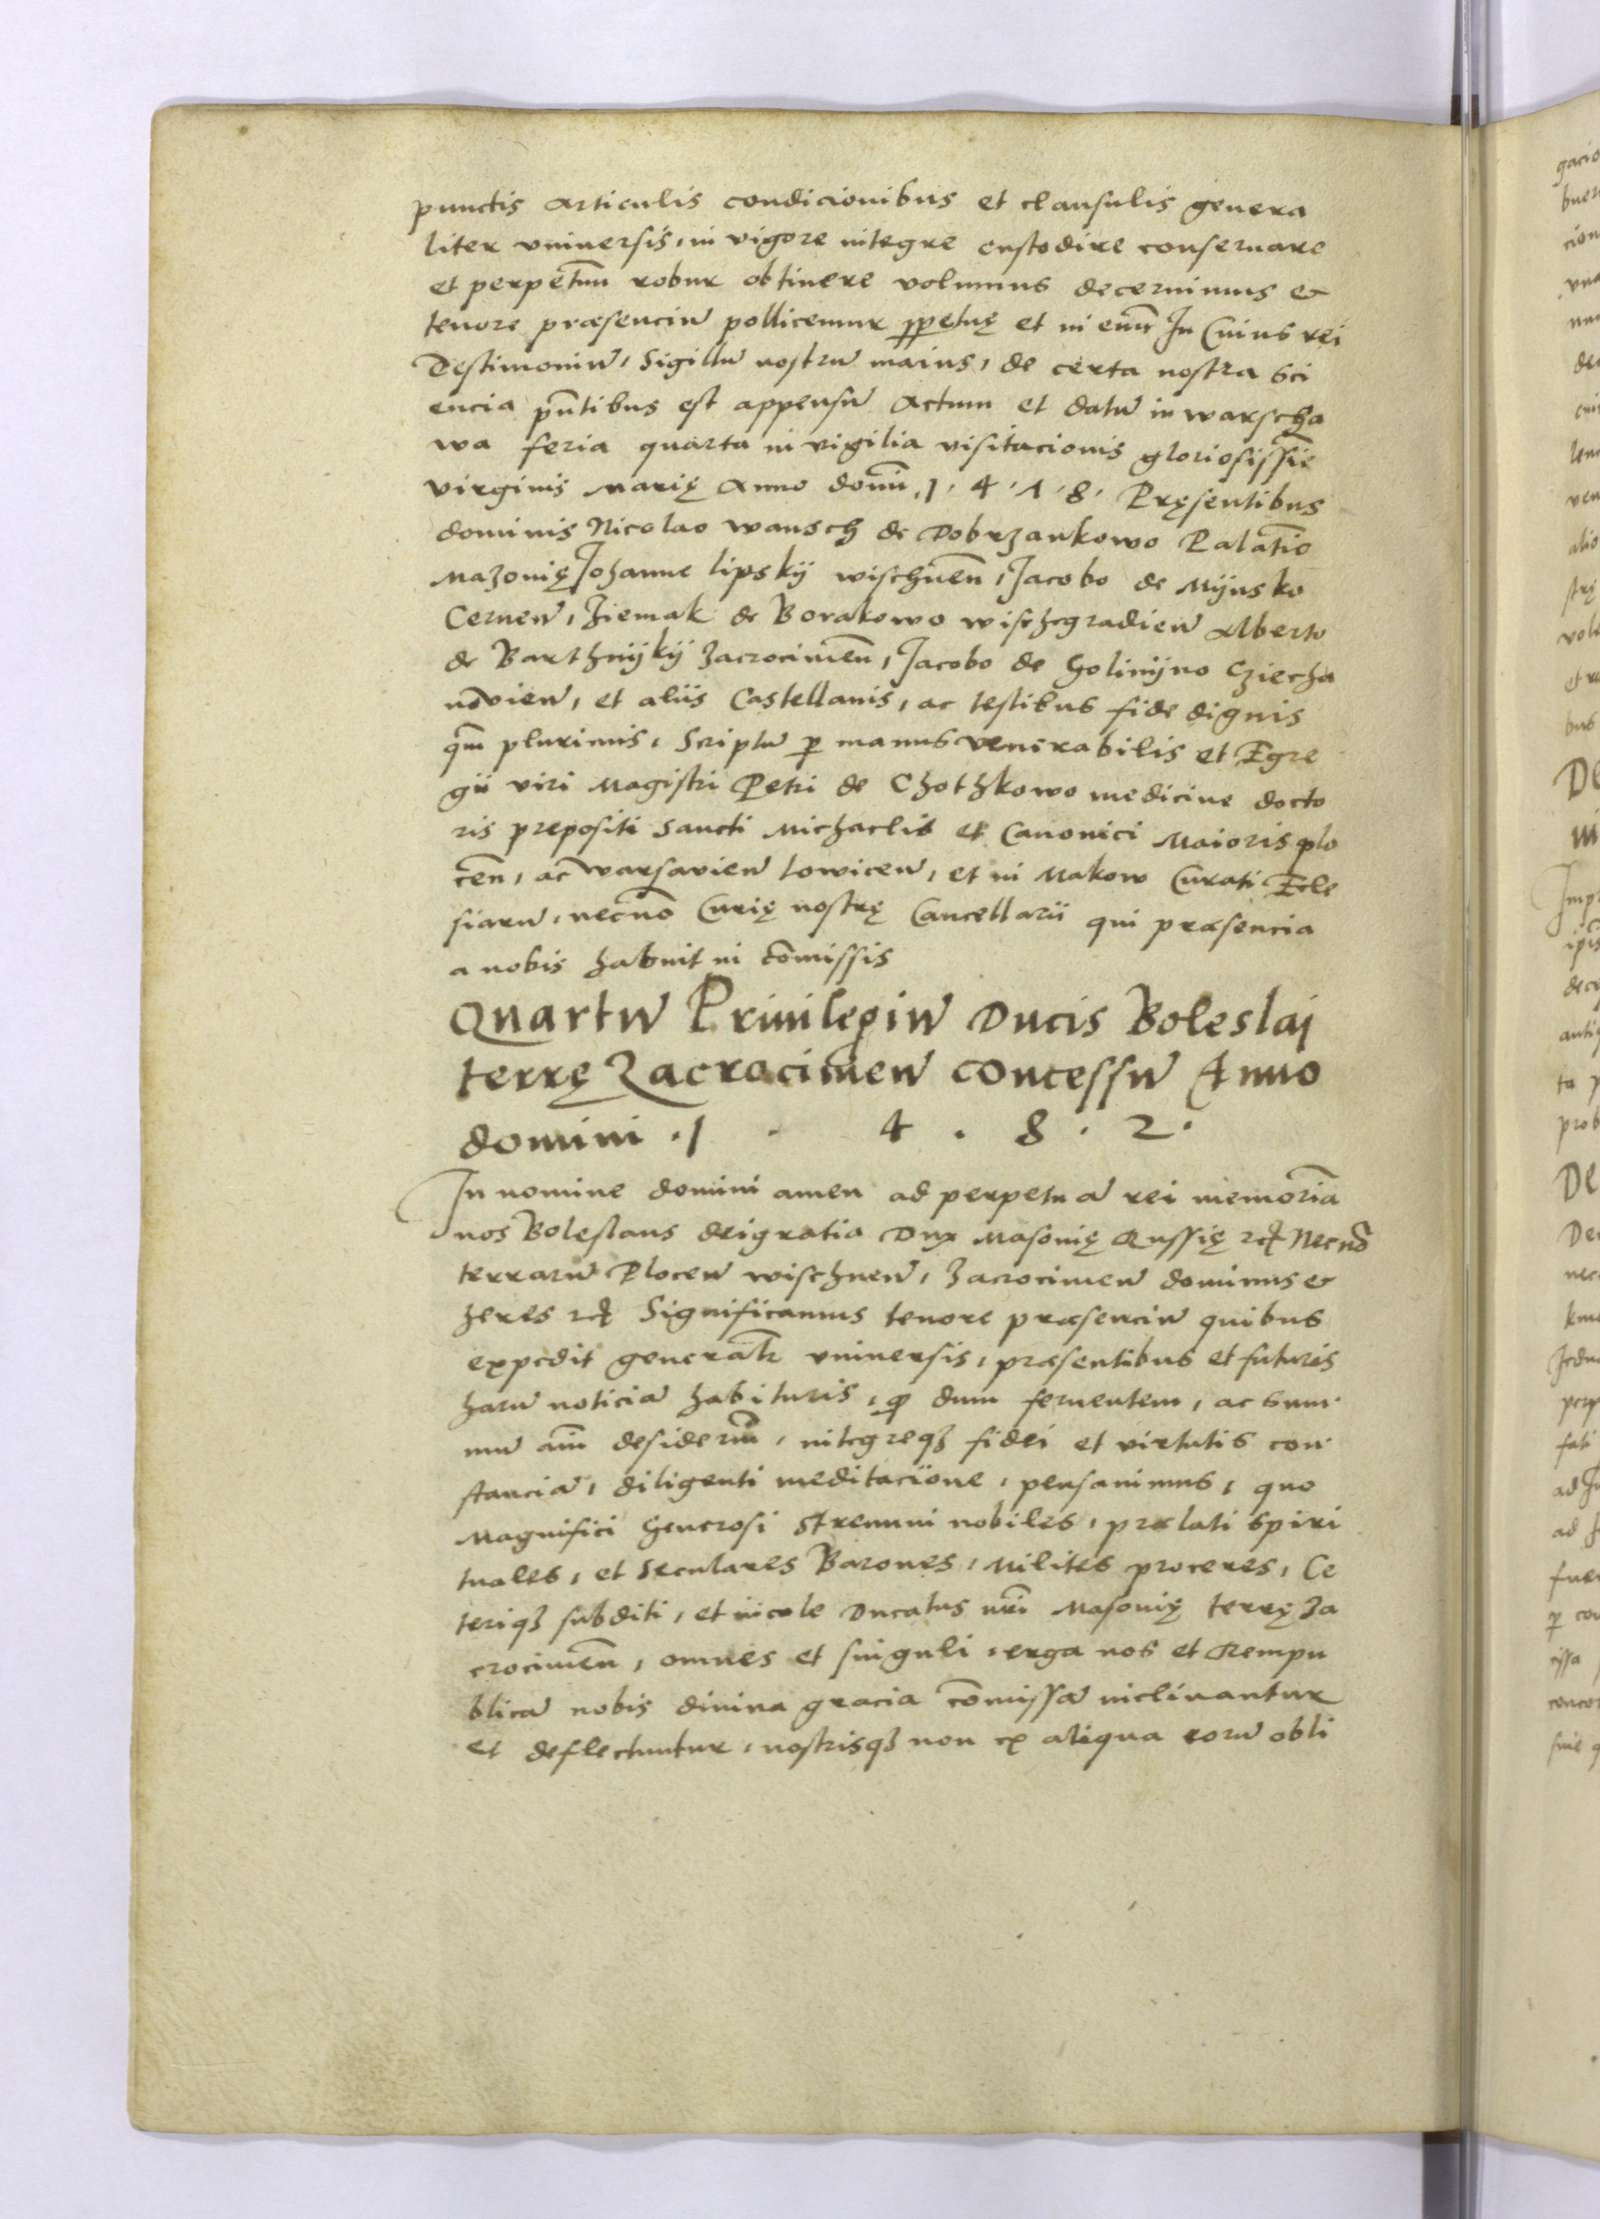 punctis articulis condicionibus et clausulis genera
liter vniuersis, in vigore integre custodire conseruare
et perpetuũ robur obtinere volumus decernimus &
tenore præsenciũ pollicemur ꝑpetuę et in euũ In Cuius rei
Testimoniũ, Sigillũ nostrũ maius, de certa nostra sci
encia pñtibus est appensũ Actum et datũ in warscha
wa feria quarta in vigilia visitacionis gloriosissiẽ
virginis Marię Anno domĩ 1 · 4 · 1 · 8 · Pręsentibus
dominis Nicolao wansch de Dobrzankowo Palatĩo
Mazouię Johanne lipskÿ wischneñ, Jacobo de Mÿnsko
Cerneñ, Ziemak de Borakowo wischegradieñ Alberto
de BarthnÿkÿZacrocimeñ, Jacobo de Golimÿno Cziecha
nõuieñ, et aliis Castellanis, ac testibus fide dignis
qm̃ plurimis, Scriptũ ꝑ manus venerabilis et Egre
gii viri Magistri Petri de Chothkowo medicine docto
ris prepositi Sancti Michaelis et Canonici Maioris plo
ceñ, ac warsauieñ lowiceñ, et in Makow Curati Ecle
siarũ, necnõ Curię nostrę Cancellarii qui præsencia
a nobis habuit in cõmissis
Quartũ Priuilegiũ Ducis Boleslai
terrę Zacrocimeñ concessũ Anno
domini · 1 · 4 · 8 · 2 ·
In nomine domini amen ad perpetuã rei memoriã
nos Boleslaus dei gratia Dux Masouię Russię ꝛcꝭ Necnõ
terrarũ Ploceñ wischneñ, Zacrocimeñ dominus &
heres ꝛcꝭ Significamus tenore præsenciũ quibus
expedit generalr̃ vniuersis, præsentibus et futuris
harũ noticiã habituris, ꝙ dum feruentem, ac sum
mũ aĩm desideriũ, integreqꝫ fidei et virtutis con
stanciã, diligenti meditaciione, pensauimus, quo
Magnifici Generosi Strenuui nobiles, prælati spiri
tuales, et Seculares Barones, Milites proceres, Ce
teriqꝫ subditi, et incole Ducatus nr̃i Masouię terrę Za
crocimeñ, omnes et singuli, erga nos et Rempu
blicã nobis diuina gracia cõmissã inclinantur
et deflectuntur, nostrisqꝫ non ex aliqua eorũ obli